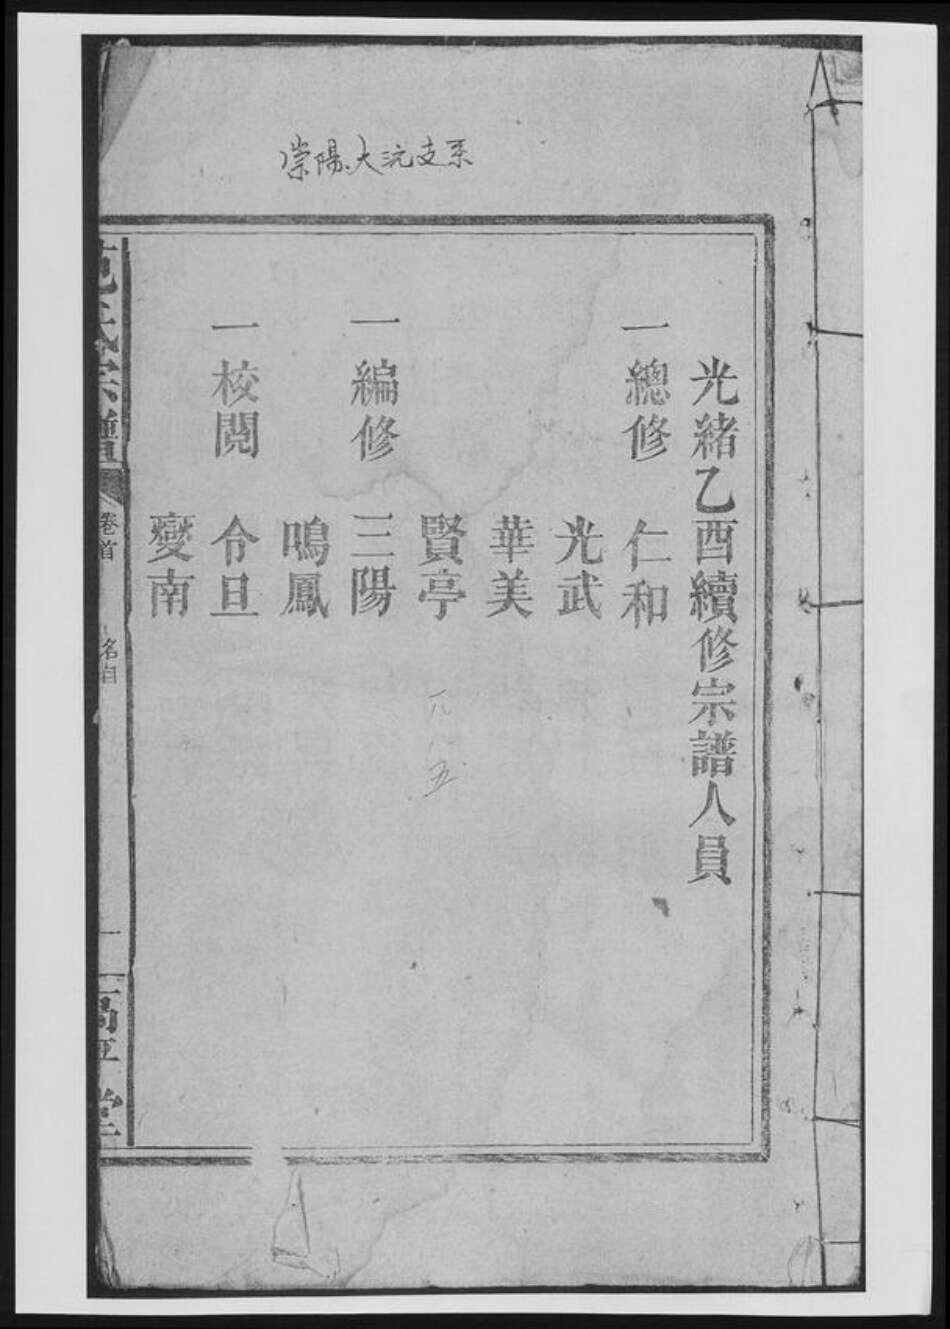 崇陽大沅支系
光緒乙酉續修宗譜人員
一總修 仁和
光武
華美
賢亭
一編修 三陽
鳴鳳
一校閱 令旦
變南
范氏宗譜 卷首 名目 一 高平堂
五